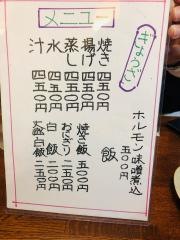 メニュー
ぎょうざ
焼き 四五〇円
揚げ 四五〇円
蒸し 四五〇円
水 四五〇円
汁 四五〇円
ホルモン味噌煮込
五〇〇円
飯
焼き飯 五〇〇円
おにぎり 二五〇円
白飯 二〇〇円
大盛白飯 二五〇円